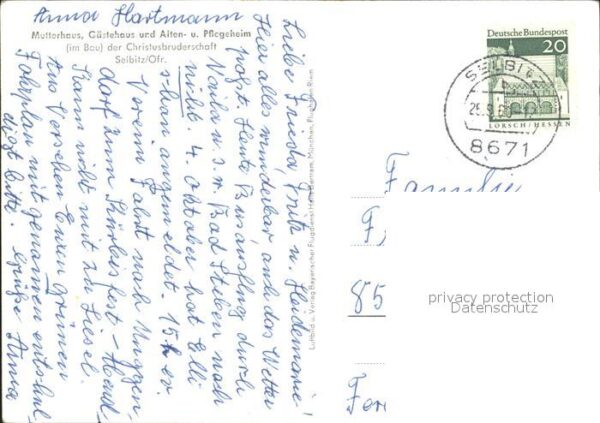 Anna Hartmann
Mutterhaus, Gästehaus und Alten- u. Pflegeheim
(im Bau) der Christusbruderschaft
Selbitz/Ofr.
Liebe Frieda, Fritz u. Heidemarie!
Hier alles wunderbar auch das Wetter
paßt. Heute Busausflug durch
Naila u.s.w. Bad Steben nach
4. Oktober hat Elli
schon angemeldet. 15 h ev.
Verein Fahrt nach
darf zum Kürbisfest-Abend
Kann nicht mit zu Liesel.
Aus Versehen Euren grünen
Fahrplan mitgenommen entschul
digt bitte. Grüße Anna
Luftbild u. Verlag Bayerischer Flugdienst Hans Bertram, München, Flughafen Riem
Deutsche Bundespost
20
LORSCH/HESSEN
SELBITZ
8671
Familie
F
85
privacy protection
Datenschutz